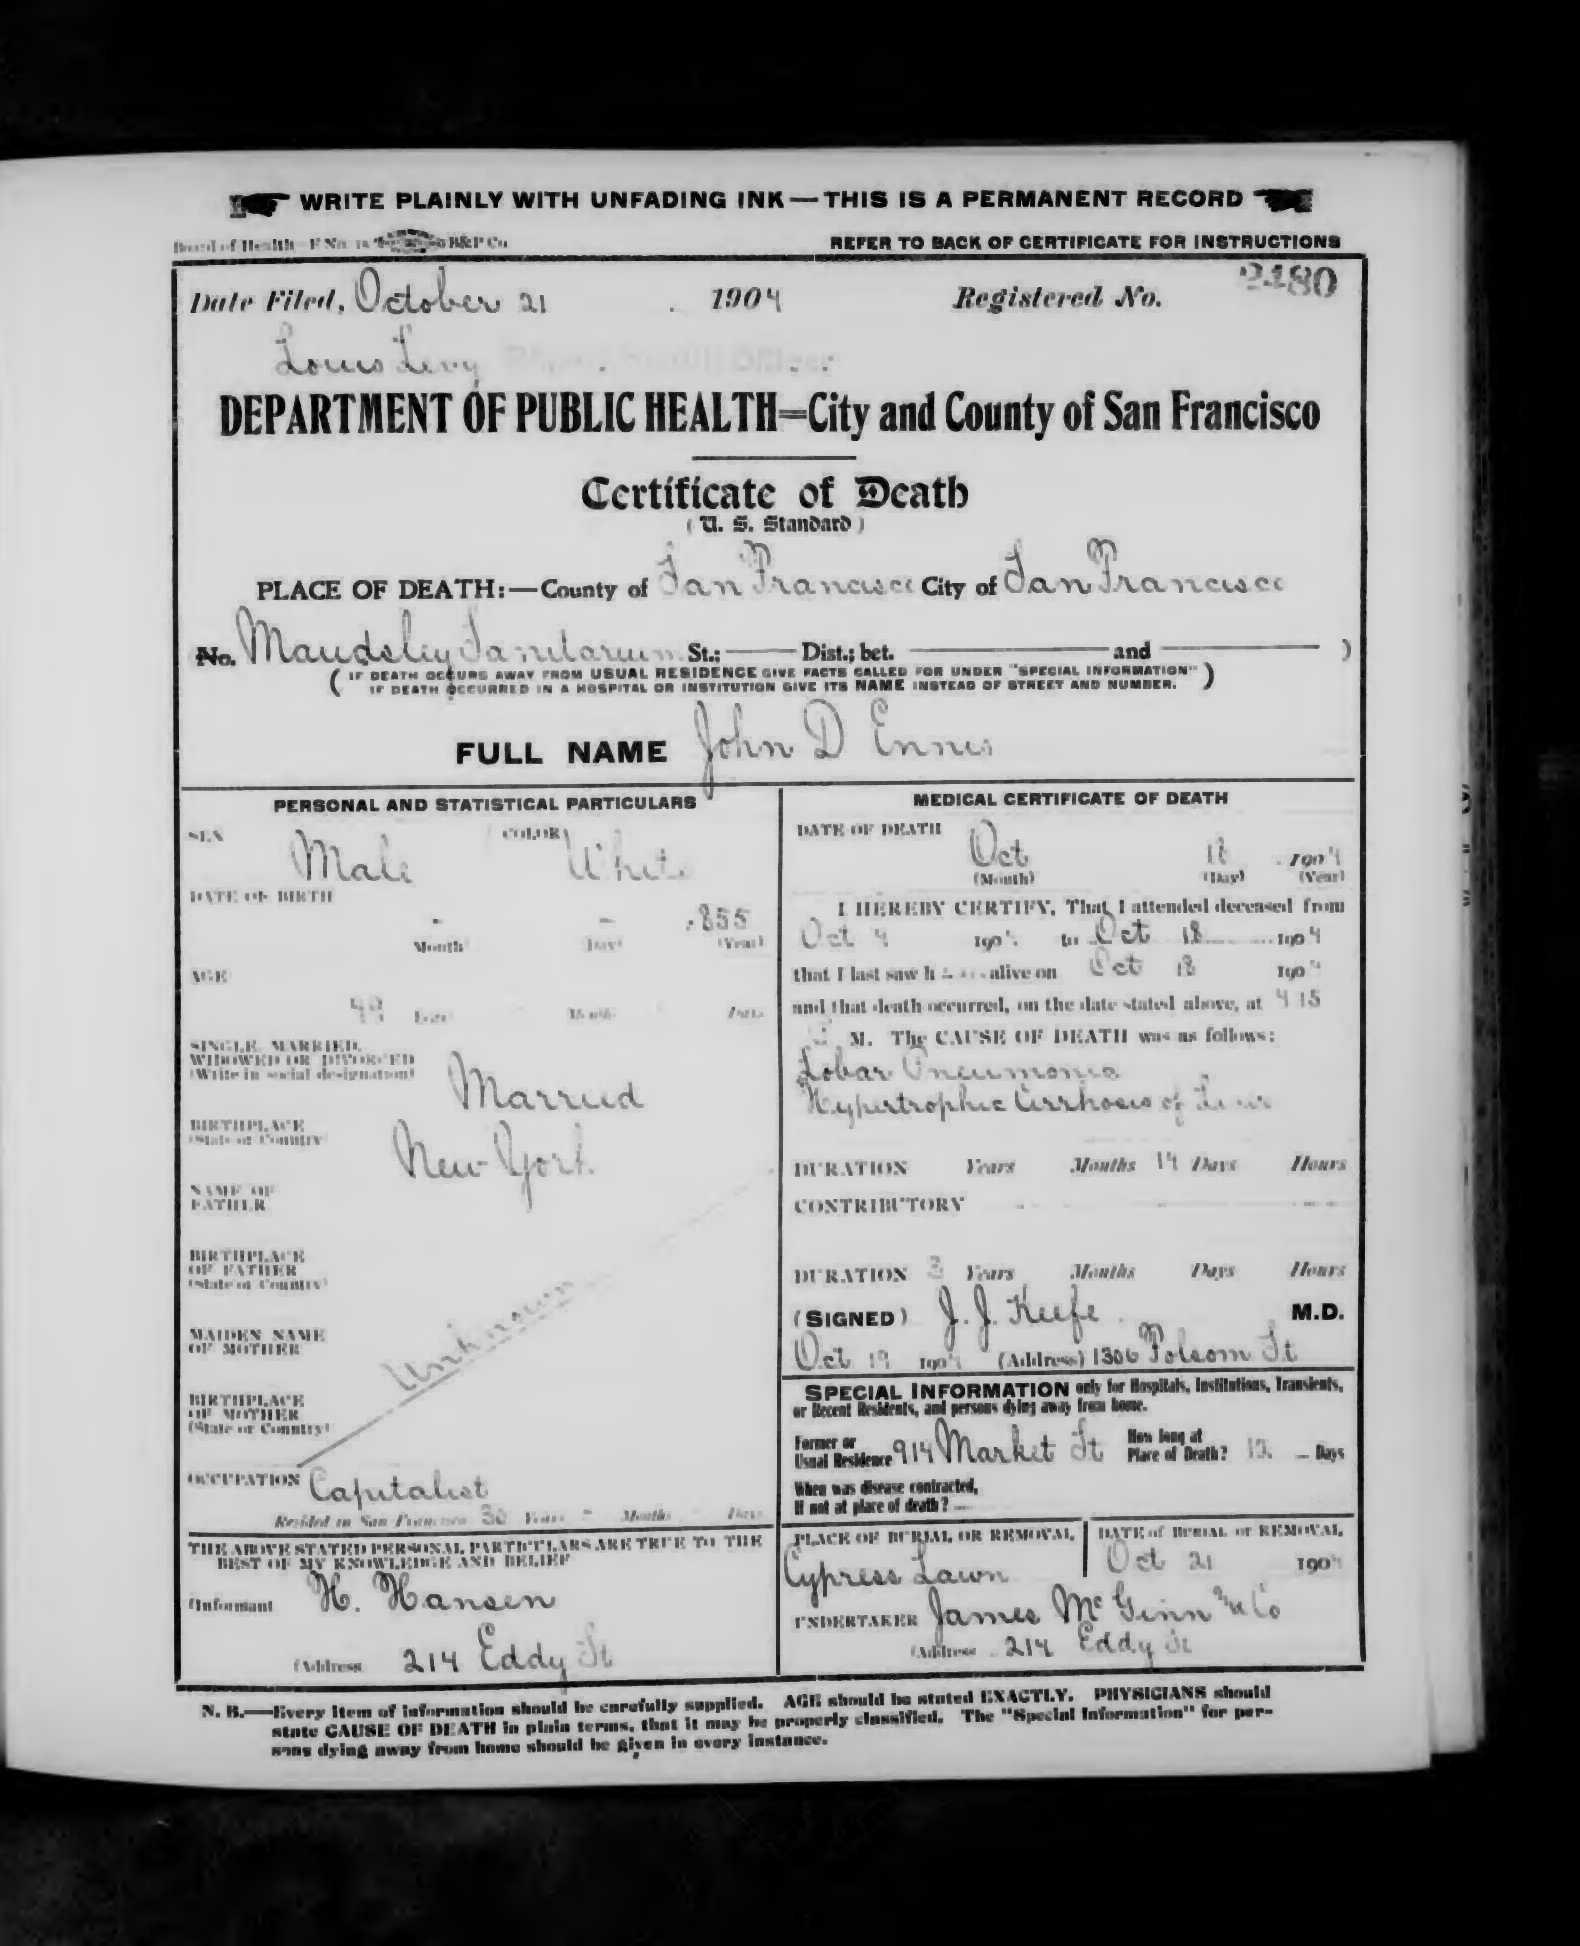 WRITE PLAINLY WITH UNFADING INK — THIS IS A PERMANENT RECORD
Board of Health—F No. B&P Co
REFER TO BACK OF CERTIFICATE FOR INSTRUCTIONS
Date Filed, October 21 1904 Registered No. 2480
Louis Levy
DEPARTMENT OF PUBLIC HEALTH=City and County of San Francisco
Certificate of Death
( U. S. Standard )
PLACE OF DEATH:—County of San Francisco City of San Francisco
No. Maudsley Sanitarium St.; Dist.; bet. and )
( IF DEATH OCCURS AWAY FROM USUAL RESIDENCE GIVE FACTS CALLED FOR UNDER "SPECIAL INFORMATION" )
IF DEATH OCCURRED IN A HOSPITAL OR INSTITUTION GIVE ITS NAME INSTEAD OF STREET AND NUMBER.
FULL NAME John D Ennis
PERSONAL AND STATISTICAL PARTICULARS
SEX Male COLOR White
DATE OF BIRTH
- - 1855
(Month) (Day) (Year)
AGE
49 Years Months Days
SINGLE, MARRIED,
WIDOWED OR DIVORCED
(Write in social designation)
Married
BIRTHPLACE
(State or Country)
New York
NAME OF
FATHER
BIRTHPLACE
OF FATHER
(State or Country)
Unknown
MAIDEN NAME
OF MOTHER
BIRTHPLACE
OF MOTHER
(State or Country)
OCCUPATION Capitalist
Resided in San Francisco 30 Years - Months - Days
THE ABOVE STATED PERSONAL PARTICULARS ARE TRUE TO THE
BEST OF MY KNOWLEDGE AND BELIEF
(Informant H. Hansen
(Address 214 Eddy St
MEDICAL CERTIFICATE OF DEATH
DATE OF DEATH
Oct 18 1904
(Month) (Day) (Year)
I HEREBY CERTIFY, That I attended deceased from
Oct 4 1904 to Oct 18 1904
that I last saw h alive on Oct 18 1904
and that death occurred, on the date stated above, at 4 15
M. The CAUSE OF DEATH was as follows:
Lobar Pneumonia
Hypertrophic Cirrhosis of Liver
DURATION Years Months 14 Days Hours
CONTRIBUTORY
DURATION 3 Years Months Days Hours
(SIGNED) J. J. Keefe M.D.
Oct 19 1904 (Address) 1306 Folsom St
SPECIAL INFORMATION only for Hospitals, Institutions, Transients,
or Recent Residents, and persons dying away from home.
Former or
Usual Residence 914 Market St
How long at
Place of Death? 12 — Days
When was disease contracted,
If not at place of death? —
PLACE OF BURIAL OR REMOVAL,
Cypress Lawn
DATE of BURIAL or REMOVAL,
Oct 21 1904
UNDERTAKER James McGinn & Co
(Address 214 Eddy St
N. B.—Every item of information should be carefully supplied. AGE should be stated EXACTLY. PHYSICIANS should
state CAUSE OF DEATH in plain terms, that it may be properly classified. The "Special Information" for per-
sons dying away from home should be given in every instance.